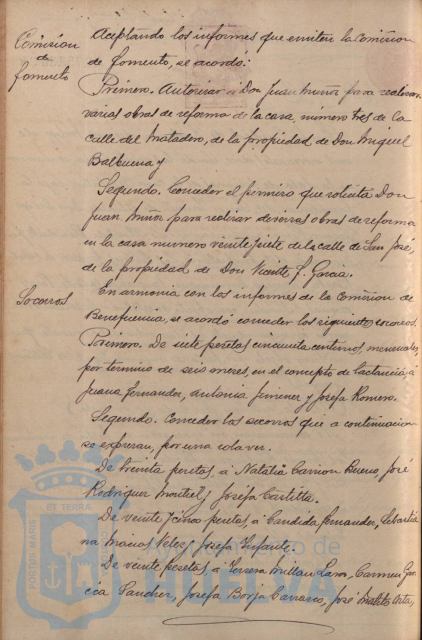 Comision
de
fomento
Aceptando los informes que emiten la Comision
de Fomento, se acordó:
Primero. Autorizar a Don Juan Muñoz para realizar
varias obras de reforma de la casa, número tres de la
calle del Matadero, de la propiedad de Don Miguel
Balbuena y
Segundo. Conceder el permiso que solicita Don
Juan Muñoz para realizar diversas obras de reforma
en la casa numero veintisiete de la calle de San José,
de la propiedad de Don Vicente F. Garcia.
Socorros
En armonia con los informes de la Comision de
Beneficencia, se acordó conceder los siguientes socorros.
Primero. De siete pesetas cincuenta centimos, mensuales,
por termino de seis meses, en el concepto de lactancia, á
Juana Fernandez, Antonia Jimenez y Josefa Romero.
Segundo. Conceder los socorros que a continuacion
se expresan, por una sola vez.
De treinta pesetas, á Natalia Carrion Bueno, José
Rodriguez Montiel y Josefa
De veinte y cinco pesetas, á Candida Fernandez, Sebastia
na Macias Velez y Josefa Infante.
De veinte pesetas á Teresa Millan Lara, Carmen Gar
cia Sanchez, Josefa Borja Carrasco, José
PORTUS MARIS ET TERRAE
Ayuntamiento de
HUELVA